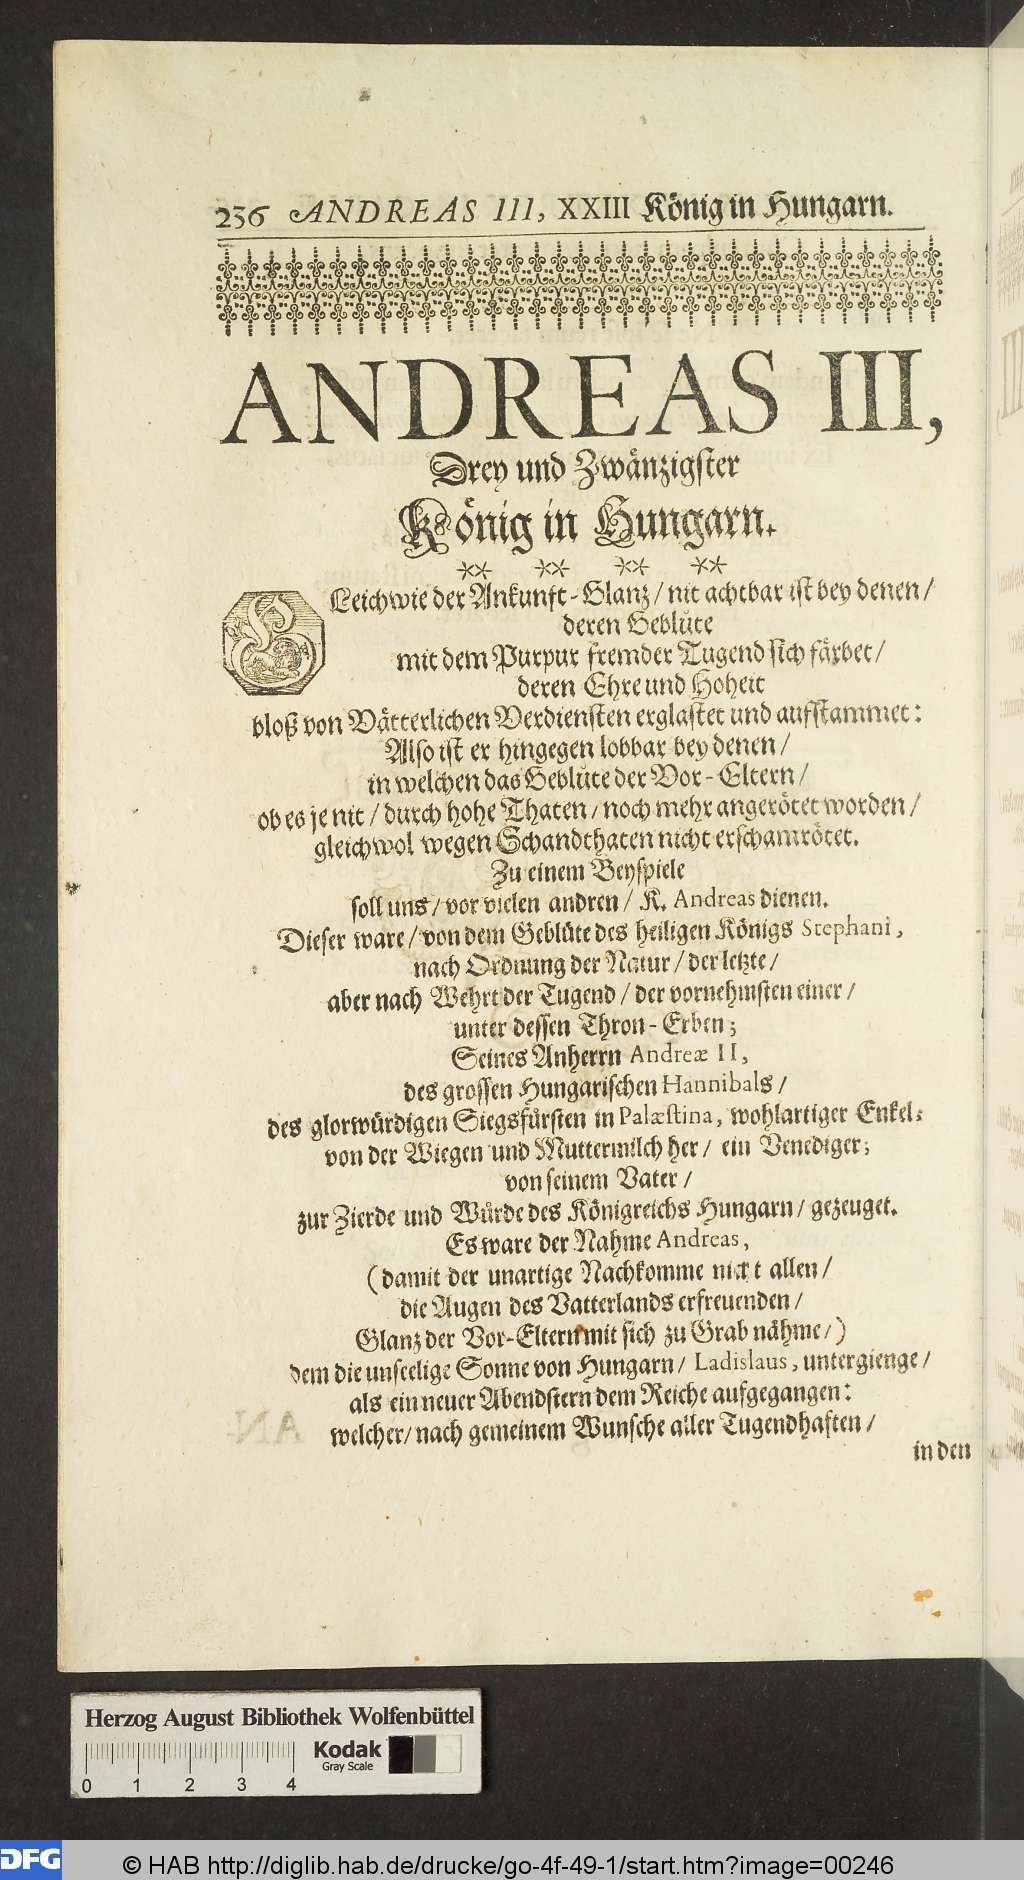 236 ANDREAS III, XXIII König in Hungarn.
ANDREAS III,
Drey und Zwänzigster
König in Hungarn.
** ** ** **
GLeichwie der Ankunft-Glanz / nit achtbar ist bey denen /
deren Geblüte
mit dem Purpur fremder Tugend sich färbet /
deren Ehre und Hoheit
bloß von Vätterlichen Verdiensten erglastet und aufstammet:
Also ist er hingegen lobbar bey denen /
in welchen das Geblüte der Vor-Eltern /
ob es je nit / durch hohe Thaten / noch mehr angerötet worden /
gleichwol wegen Schandthaten nicht erschamrötet.
Zu einem Beyspiele
soll uns / vor vielen andren / K. Andreas dienen.
Dieser ware / von dem Geblüte des heiligen Königs Stephani,
nach Ordnung der Natur / der letzte /
aber nach Wehrt der Tugend / der vornehmsten einer /
unter dessen Thron-Erben;
Seines Anherrn Andreæ II,
des grossen Hungarischen Hannibals /
des glorwürdigen Siegsfürsten in Palæstina, wohlartiger Enkel;
von der Wiegen und Muttermilch her / ein Venediger;
von seinem Vater /
zur Zierde und Würde des Königreichs Hungarn / gezeuget.
Es ware der Nahme Andreas,
(damit der unartige Nachkomme nicht allen /
die Augen des Vatterlands erfreuenden /
Glanz der Vor-Eltern mit sich zu Grab nähme /)
dem die unseelige Sonne von Hungarn / Ladislaus, untergienge /
als ein neuer Abendstern dem Reiche aufgegangen:
welcher / nach gemeinem Wunsche aller Tugendhaften /
in den
Herzog August Bibliothek Wolfenbüttel
Kodak
Gray Scale
0 1 2 3 4
DFG
© HAB http://diglib.hab.de/drucke/go-4f-49-1/start.htm?image=00246